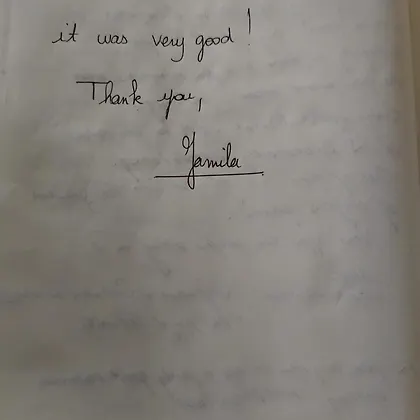 it was very good!
Thank you,
Jamila